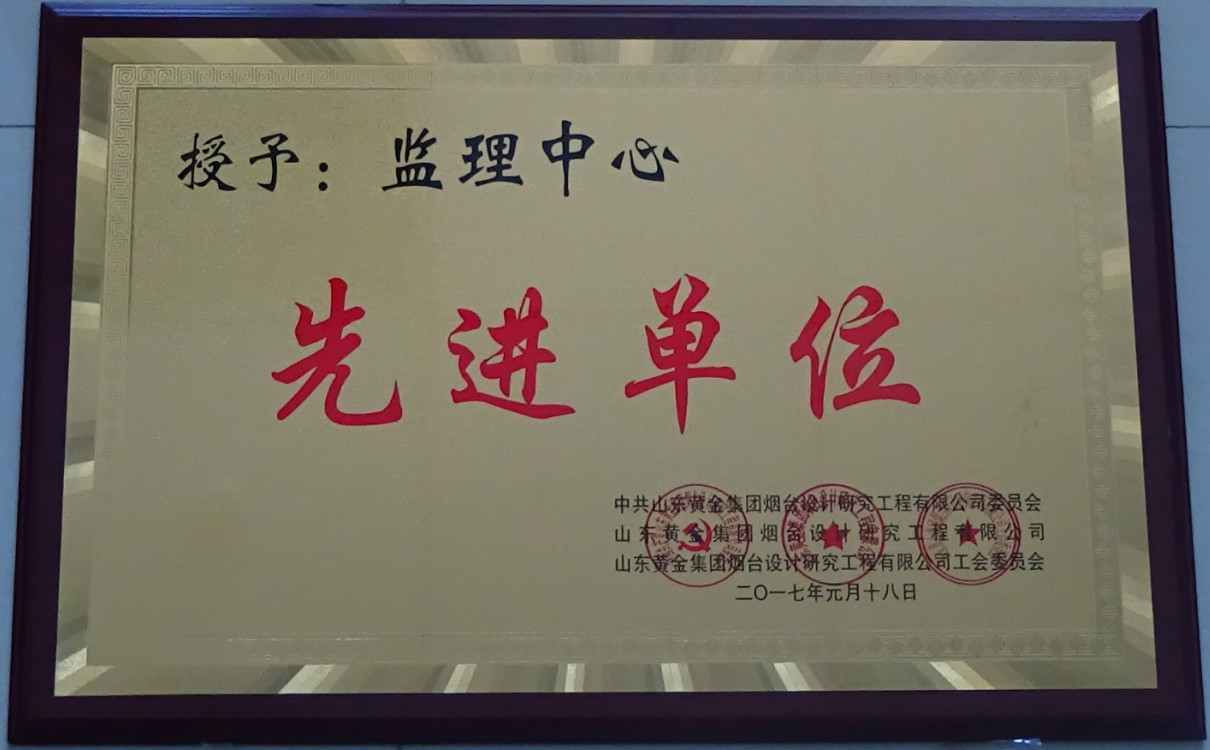 授予：监理中心
先进单位
中共山东黄金集团烟台设计研究工程有限公司委员会
山东黄金集团烟台设计研究工程有限公司
山东黄金集团烟台设计研究工程有限公司工会委员会
二〇一七年元月十八日